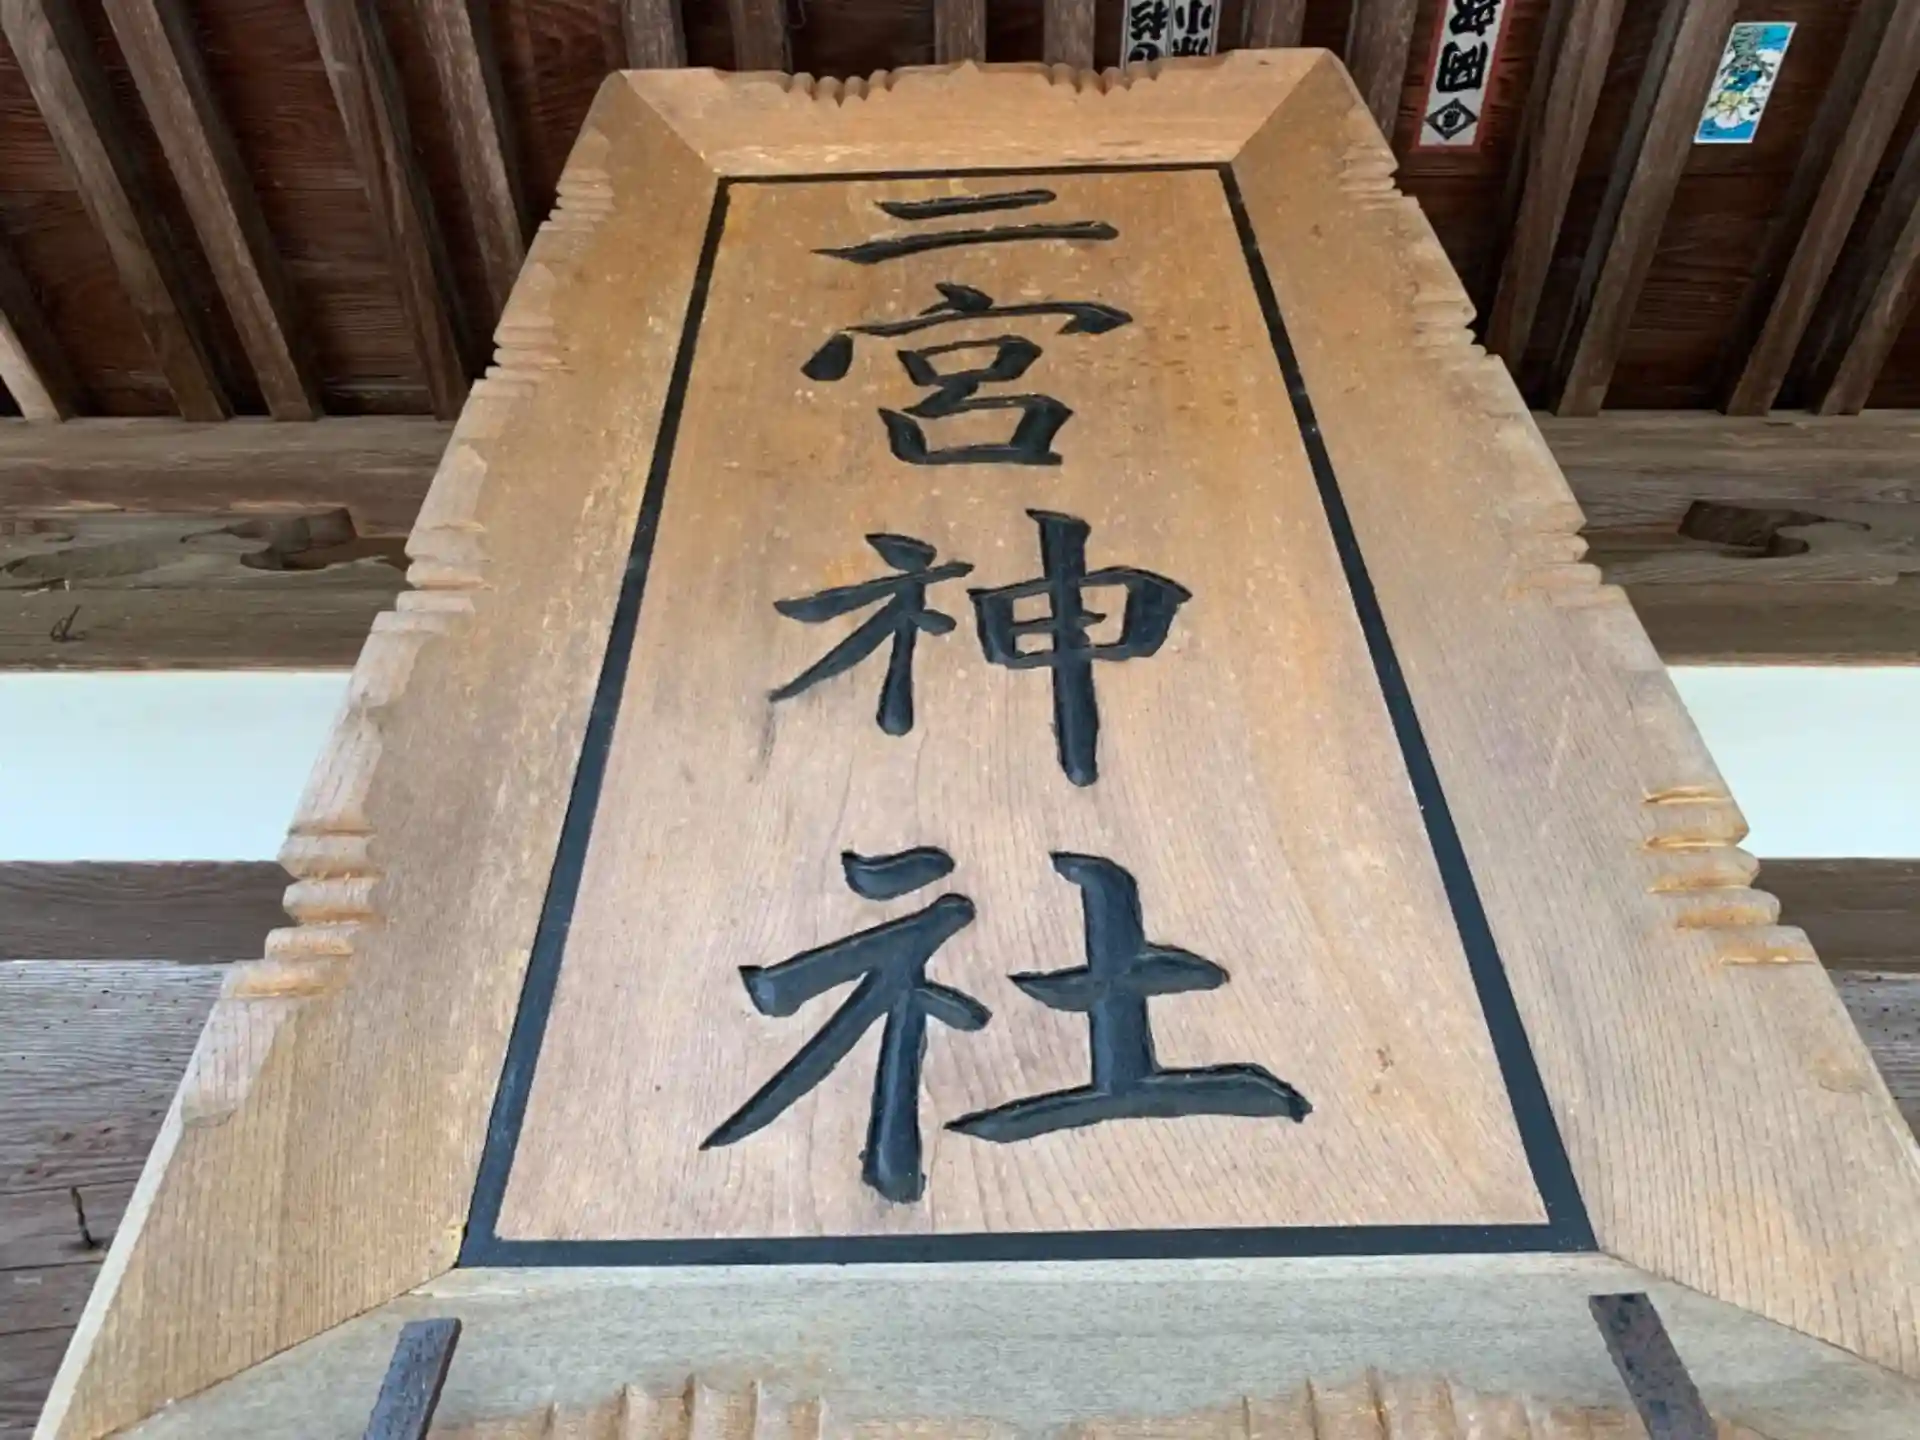 二宮神社